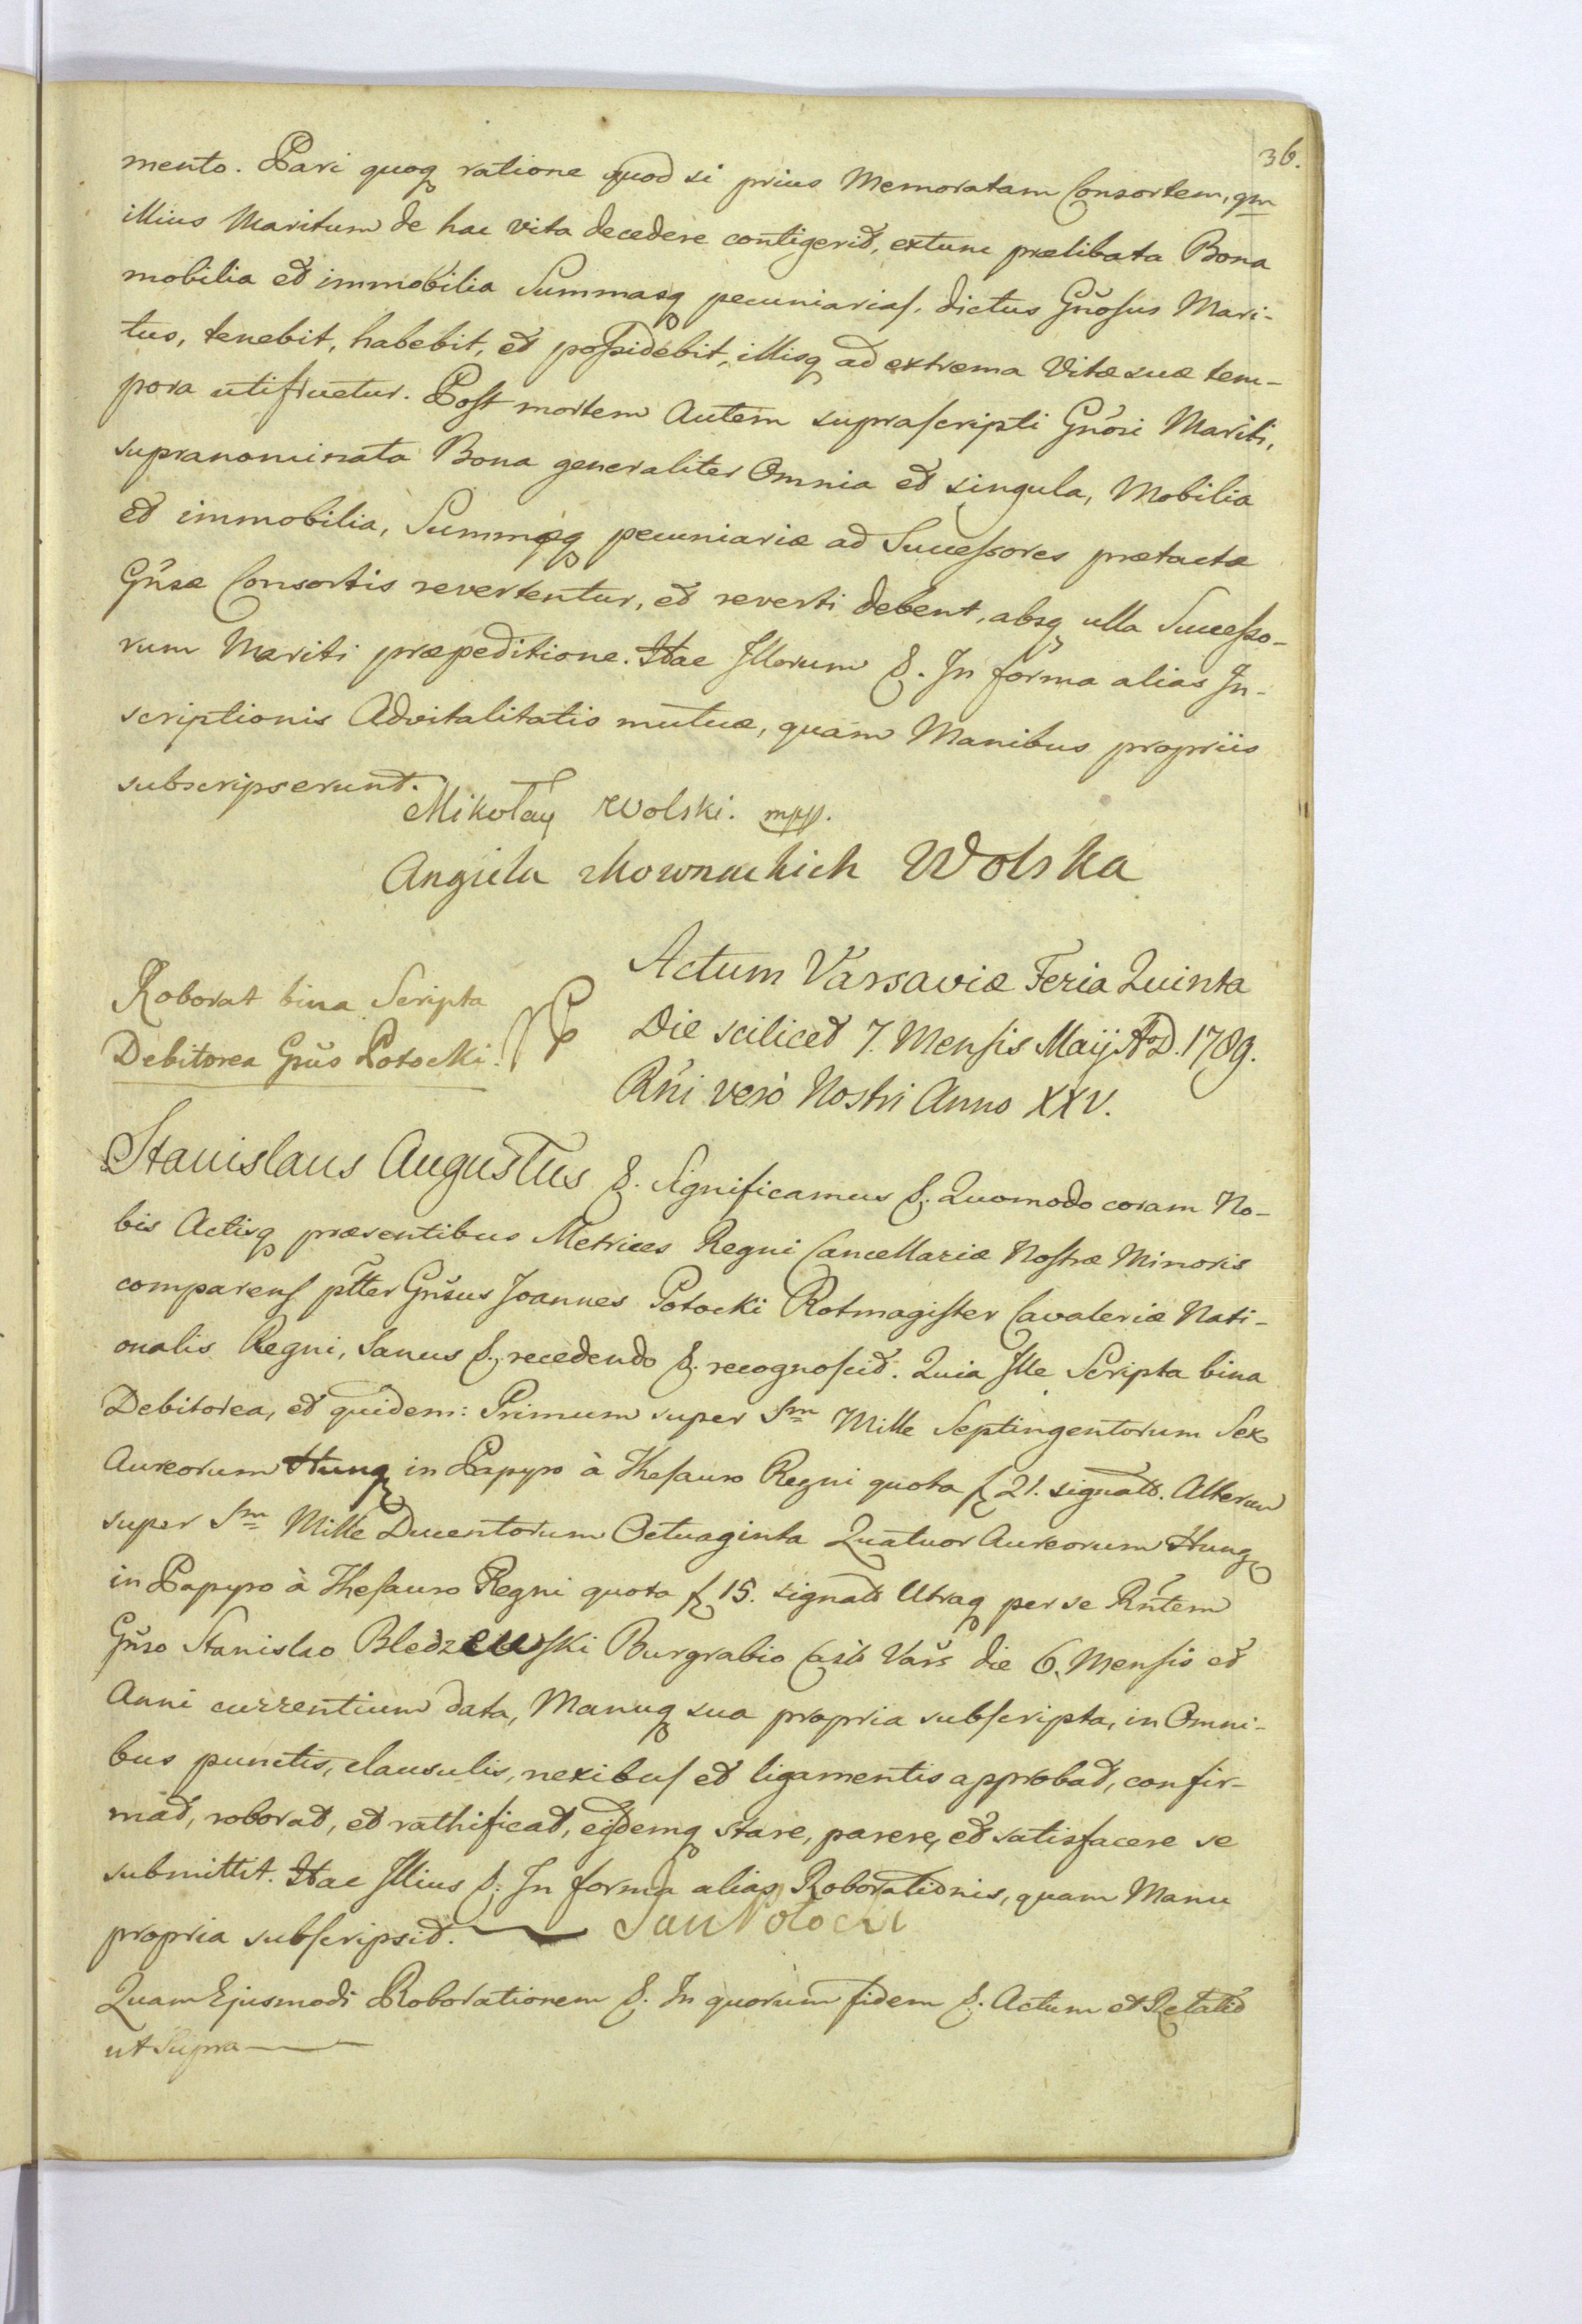 36.
mento. Pari quoq ratione quod si prius Memoratam Consortem, qm
illius Maritum de hac vita decedere contigerit, extunc prælibata Bona
mobilia et immobilia Summasq pecuniarias, dictus Gnosus Mari-
tus, tenebit, habebit, et possidebit, illisq ad extrema Vitæ suæ tem-
pora utifruetur. Post mortem Autem suprascripti Gnosi Mariti,
supranominata Bona generaliter Omnia et singula, Mobilia
et immobilia, Summæq pecuniariæ ad Successores prætactæ
Gnsæ Consortis revertentur, et reverti debent, absq ulla Successo-
rum Mariti præpeditione. Hac Illorum &. In forma alias In-
scriptionis Advitalitatis mutuæ, quam Manibus propriis
subscripserunt.
Mikołay Wolski. mpp.
Angiela Wolska
Roborat bina Scripta
Debitorea Gnus Potocki.
Actum Varsaviæ Feria Quinta
Die scilicet 7. Mensis Maij AoD. 1789.
Rni verò Nostri Anno XXV.
Stanislaus Augustus &. Significamus &. Quomodo coram No-
bis Actisq præsentibus Metrices Regni Cancellariæ Nostræ Minoris
comparens pltter Gnsus Joannes Potocki Rotmagister Cavaleriæ Nati-
onalis Regni, Sanus &. recedendo &. recognoscit. Quia Ille Scripta bina
Debitorea, et quidem: Primum super Sm Mille Septingentorum Sex
Aureorum Hung in Papyro à Thesauro Regni quota f 21. signato. Alterum
super Sm Mille Ducentorum Octuaginta Quatuor Aureorum Hung
in Papyro à Thesauro Regni quota f 15. signato Utraq per se Rntem
Gnso Stanislao Bledzewski Burgrabio Casti Vars die 6. Mensis et
Anni currentium data, Manuq sua propria subscripta, in Omni-
bus punctis, clausulis, nexibus et ligamentis approbat, confir-
mat, roborat, et rathificat, eisdemq stare, parere, et satisfacere se
submittit. Hac Illius &. In forma alias Roborationis, quam Manu
propria subscripsit. Jan Potocki
Quam Ejusmodi Roborationem &. In quorum fidem &. Actum et Relatio
ut Supra